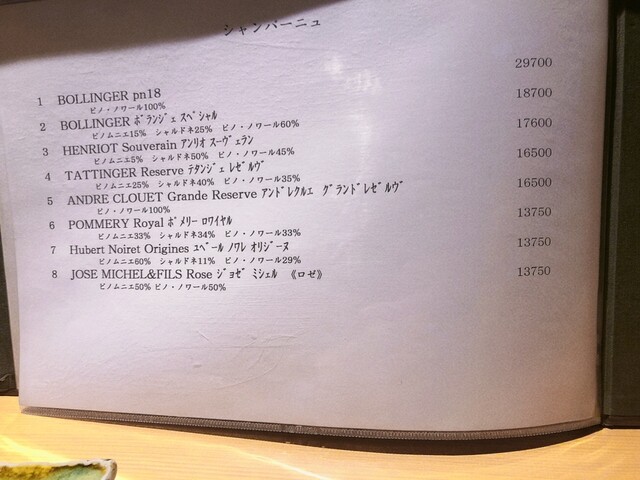 シャンパーニュ
1 BOLLINGER pn18 29700
ピノ・ノワール100%
2 BOLLINGER ﾎﾞﾗﾝｼﾞｪ ｽﾍﾟｼｬﾙ 18700
ピノムニエ15% シャルドネ25% ピノ・ノワール60%
3 HENRIOT Souverain ｱﾝﾘｵ ｽｰｳﾞｪﾗﾝ 17600
ピノムニエ5% シャルドネ50% ピノ・ノワール45%
4 TATTINGER Reserve ﾃﾀﾝｼﾞｪ ﾚｾﾞﾙｳﾞ 16500
ピノムニエ25% シャルドネ40% ピノ・ノワール35%
5 ANDRE CLOUET Grande Reserve ｱﾝﾄﾞﾚｸﾙｴ ｸﾞﾗﾝﾄﾞﾚｾﾞﾙｳﾞ 16500
ピノ・ノワール100%
6 POMMERY Royal ﾎﾟﾒﾘｰ ﾛﾜｲﾔﾙ 13750
ピノムニエ33% シャルドネ34% ピノ・ノワール33%
7 Hubert Noiret Origines ﾕﾍﾞｰﾙ ﾉﾜﾚ ｵﾘｼﾞｰﾇ 13750
ピノムニエ60% シャルドネ11% ピノ・ノワール29%
8 JOSE MICHEL&FILS Rose ｼﾞｮｾﾞ ﾐｼｪﾙ 《ロゼ》 13750
ピノムニエ50% ピノ・ノワール50%